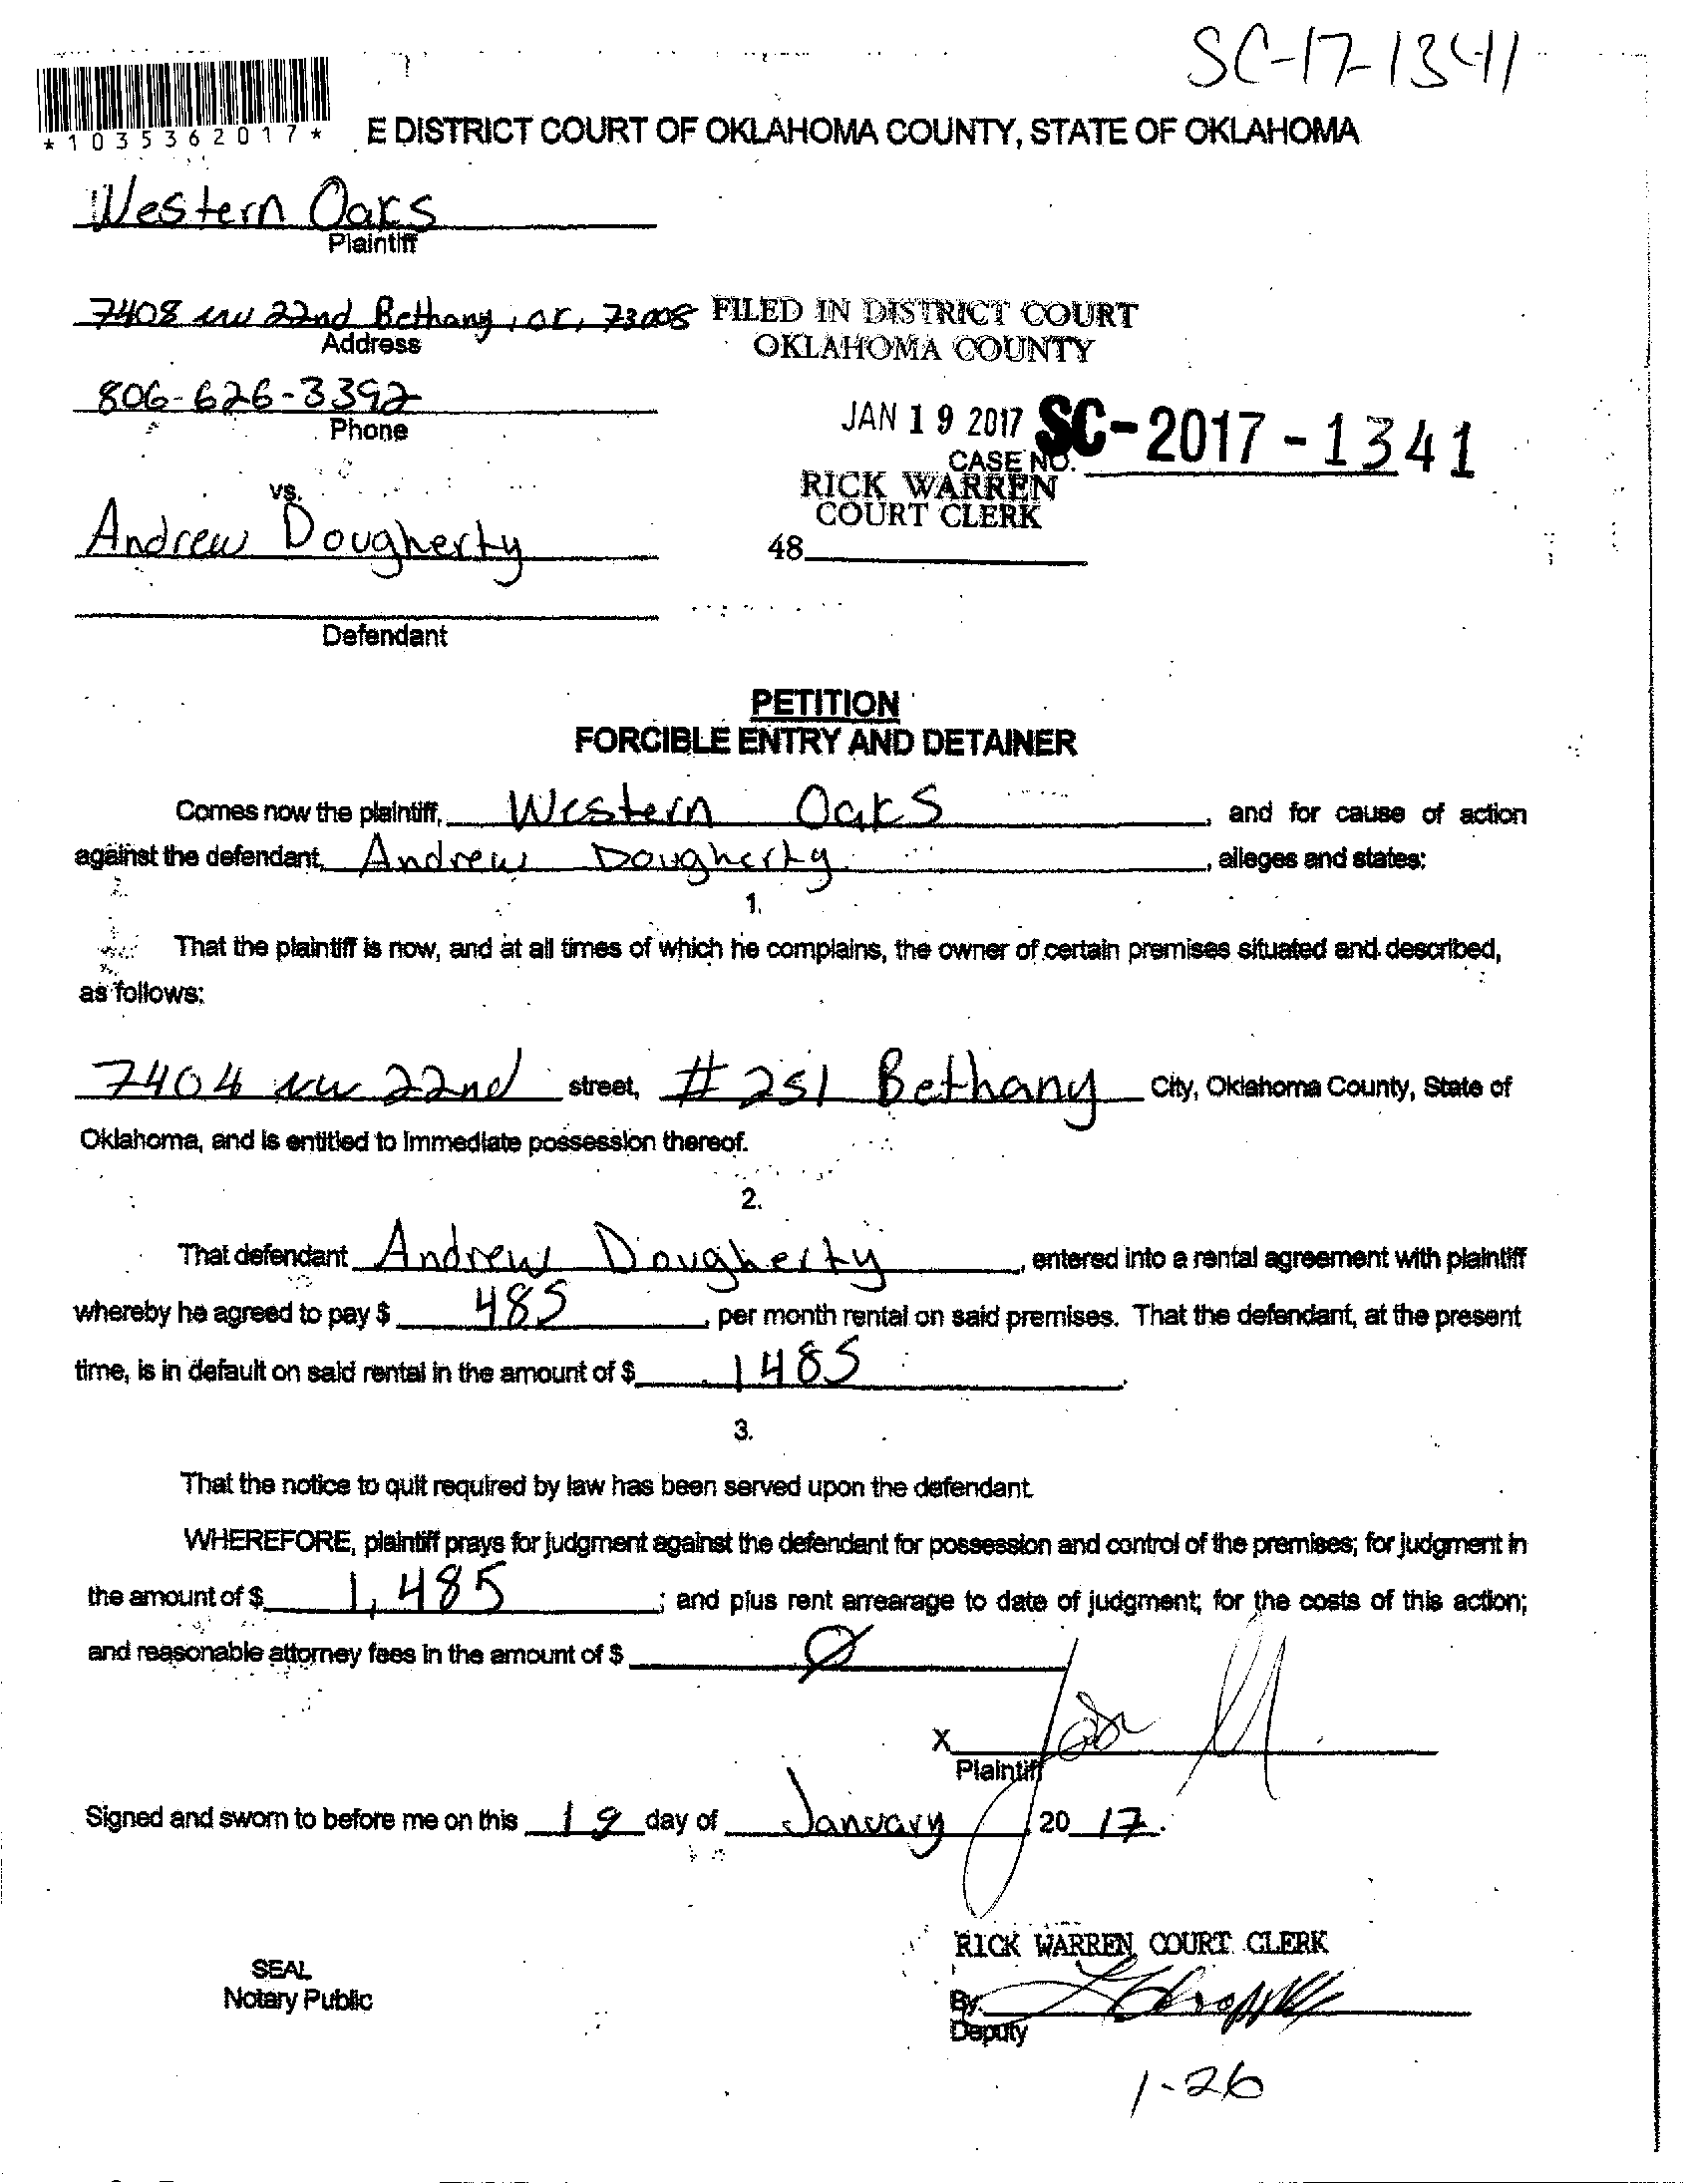 SC-17-1341
*1035362017*
E DISTRICT COURT OF OKLAHOMA COUNTY, STATE OF OKLAHOMA
Western Oaks
Plaintiff
7408 nw 22nd Bethany, OK, 73008
Address
FILED IN DISTRICT COURT
OKLAHOMA COUNTY
806-626-3392
Phone
JAN 19 2017
SC-2017-1341
CASE NO.
RICK WARREN
COURT CLERK
48
vs.
Andrew Dougherty
Defendant
PETITION
FORCIBLE ENTRY AND DETAINER
Comes now the plaintiff, Western Oaks, and for cause of action
against the defendant, Andrew Dougherty, alleges and states:
1.
That the plaintiff is now, and at all times of which he complains, the owner of certain premises situated and described,
as follows:
7404 nw 22nd street, #251 Bethany City, Oklahoma County, State of
Oklahoma, and is entitled to immediate possession thereof.
2.
That defendant Andrew Dougherty, entered into a rental agreement with plaintiff
whereby he agreed to pay $ 485, per month rental on said premises. That the defendant, at the present
time, is in default on said rental in the amount of $ 1485.
3.
That the notice to quit required by law has been served upon the defendant.
WHEREFORE, plaintiff prays for judgment against the defendant for possession and control of the premises; for judgment in
the amount of $ 1,485; and plus rent arrearage to date of judgment; for the costs of this action;
and reasonable attorney fees in the amount of $ Ø
X
Plaintiff
Signed and sworn to before me on this 19 day of January, 20 17.
RICK WARREN, COURT CLERK
SEAL
Notary Public
By:
Deputy
1-26